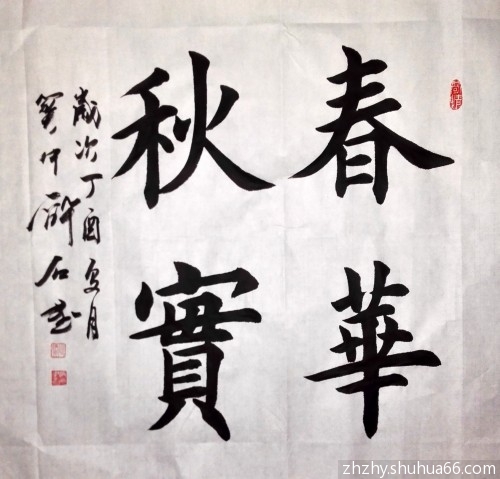 春華
秋實
歲次丁酉夏月
zhzhy.shuhua66.com